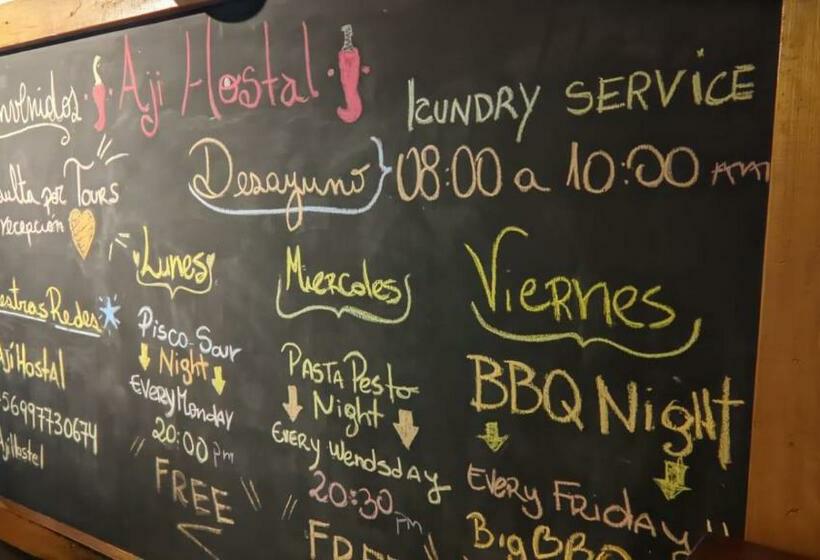 nvenidos Aji Hostal
LAUNDRY SERVICE
Desayuno } 08:00 a 10:00 AM
sulta por Tours
recepción
estras Redes
Aji Hostal
56997730674
Ajihostel
Lunes
Pisco-Sour
Night
Every Monday
20:00 pm
FREE
Miercoles
PASTA Pesto
Night
Every Wendsday
20:30 pm
FREE
Viernes
BBQ Night
Every Friday
Big BBQ